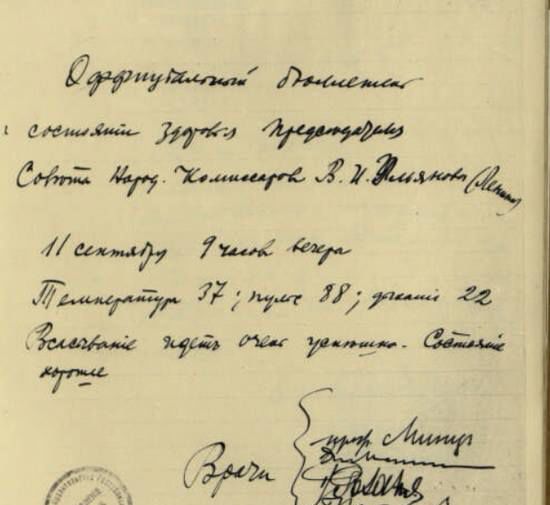 Оффицiальный бюллетень
состоянiи здоровья Председателя
Совѣта Народ. Комиссаров В. И. Ульянова (Ленина)
11 сентября 9 часов вечера
Температура 37; пульс 88; дыханiе 22
Всасыванiе идетъ очень успѣшно. Состоянiе
хорошее
Врачи
проф. Минц